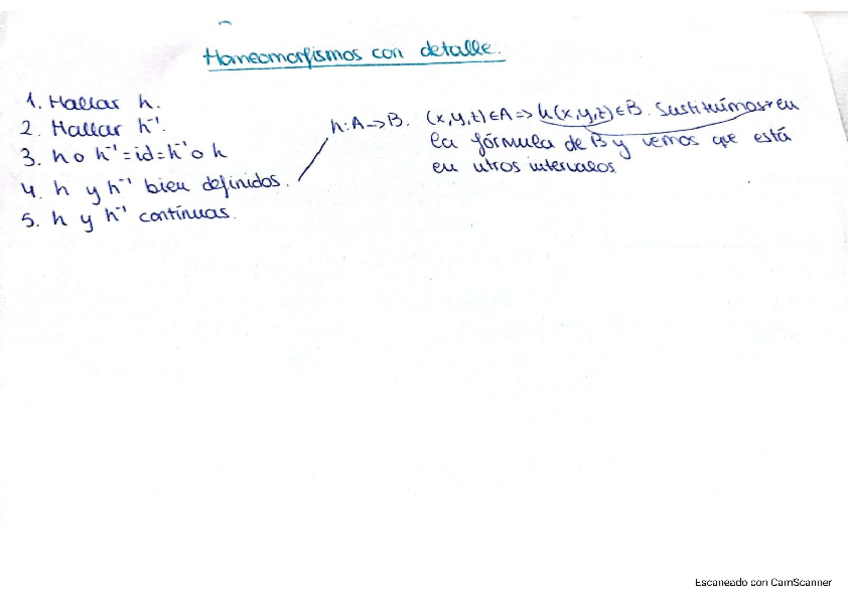 Homeomorfismos con detalle.
1. Hallar h.
2. Hallar h⁻¹.
3. h o h⁻¹ = id = h⁻¹ o h
4. h y h⁻¹ bien definidos.
5. h y h⁻¹ contínuas.
h: A → B. (x,y,z) ∈ A => h(x,y,z) ∈ B. Sustituímos en
la fórmula de B y vemos que está
en intervalos
Escaneado con CamScanner